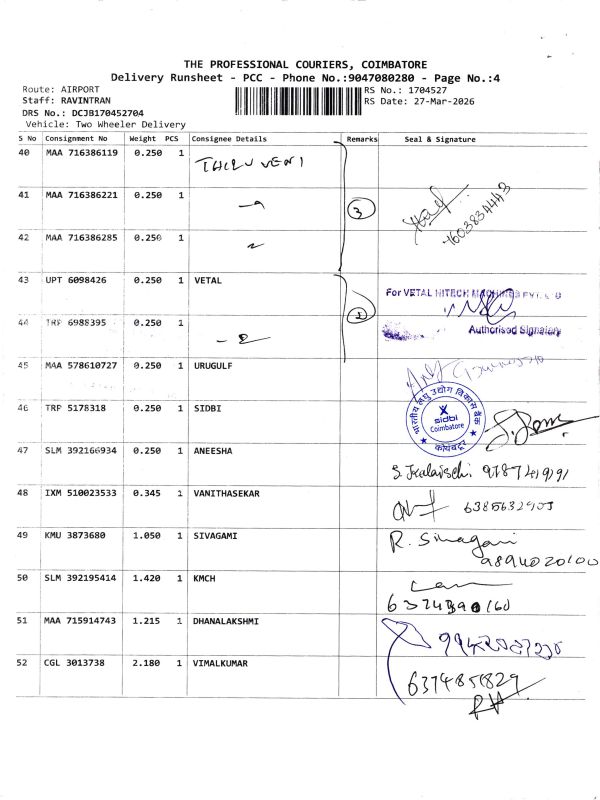 THE PROFESSIONAL COURIERS, COIMBATORE
Delivery Runsheet - PCC - Phone No.:9047080280 - Page No.:4
Route: AIRPORT
Staff: RAVINTRAN
DRS No.: DCJB170452704
Vehicle: Two Wheeler Delivery
RS No.: 1704527
RS Date: 27-Mar-2026
S No Consignment No Weight PCS Consignee Details Remarks Seal & Signature
40 MAA 716386119 0.250 1 THIRUVENI
41 MAA 716386221 0.250 1 3
42 MAA 716386285 0.250 1
43 UPT 6098426 0.250 1 VETAL
For VETAL HITECH MACHINES PVT.
44 TRP 6988395 0.250 1
Authorised Signatory
45 MAA 578610727 0.250 1 URUGULF
46 TRP 5178318 0.250 1 SIDBI
भारतीय लघु उद्योग विकास बैंक
sidbi
Coimbatore
कोयंबटूर
47 SLM 392166934 0.250 1 ANEESHA
48 IXM 510023533 0.345 1 VANITHASEKAR
49 KMU 3873680 1.050 1 SIVAGAMI R. Sivagami
9894020100
50 SLM 392195414 1.420 1 KMCH
51 MAA 715914743 1.215 1 DHANALAKSHMI
52 CGL 3013738 2.180 1 VIMALKUMAR 6374851829